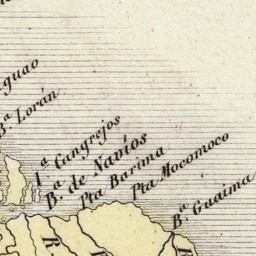 Bª Lorán
Iª Cangrejos
Bª de Navíos
Pta Barima
Pta Mocomoco
Bª Guaima
R.
R.
R.